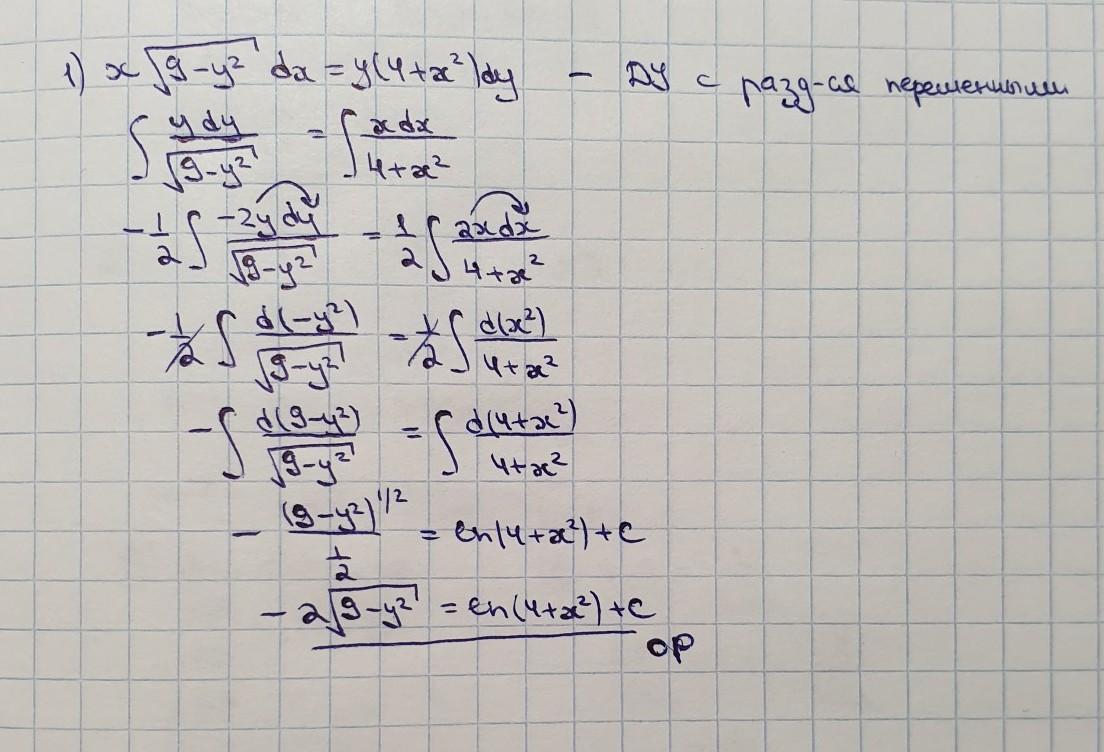 1) x√(9-y²) dx = y(4+x²)dy - ДУ с разд-ся переменными
∫ y dy / √(9-y²) = ∫ x dx / (4+x²)
-1/2 ∫ -2y dy / √(9-y²) = 1/2 ∫ 2x dx / (4+x²)
-1/2 ∫ d(-y²) / √(9-y²) = 1/2 ∫ d(x²) / (4+x²)
-∫ d(9-y²) / √(9-y²) = ∫ d(4+x²) / (4+x²)
- (9-y²)^1/2 / (1/2) = ln(4+x²)+C
-2√(9-y²) = ln(4+x²)+C
ОР